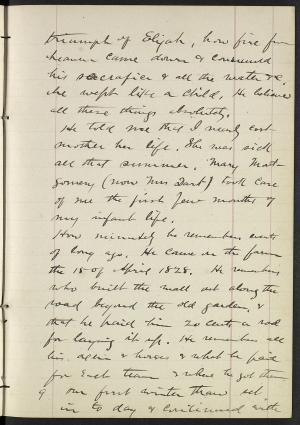 triumph of Elijah, how fire from
heaven came down & consumed
his sacrafice & all the water &c.
he wept like a child. He believes
all these things absolutely.
He told me that I nearly cost
mother her life. She was sick
all that summer. Mary Mont-
gomery (now Mrs Dart) took care
of me the first few months of
my infant life.
How minutely he remembers events
of long ago. He came on the farm
the 18 of April 1828. He remembers
who built the wall out along the
road beyond the old garden, &
that he paid him 20 cents a rod
for laying it up. He remembers all
his oxen & horses & what he paid
for each team & where he got them
9 our first winter thaw set
in to day & continued with